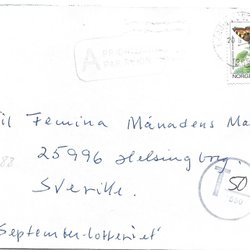 A PRIORITAIRE
NORGE
il Femina Månadens Ma
25996 Helsingborg
Sverille.
T 50
September-lotteriet"